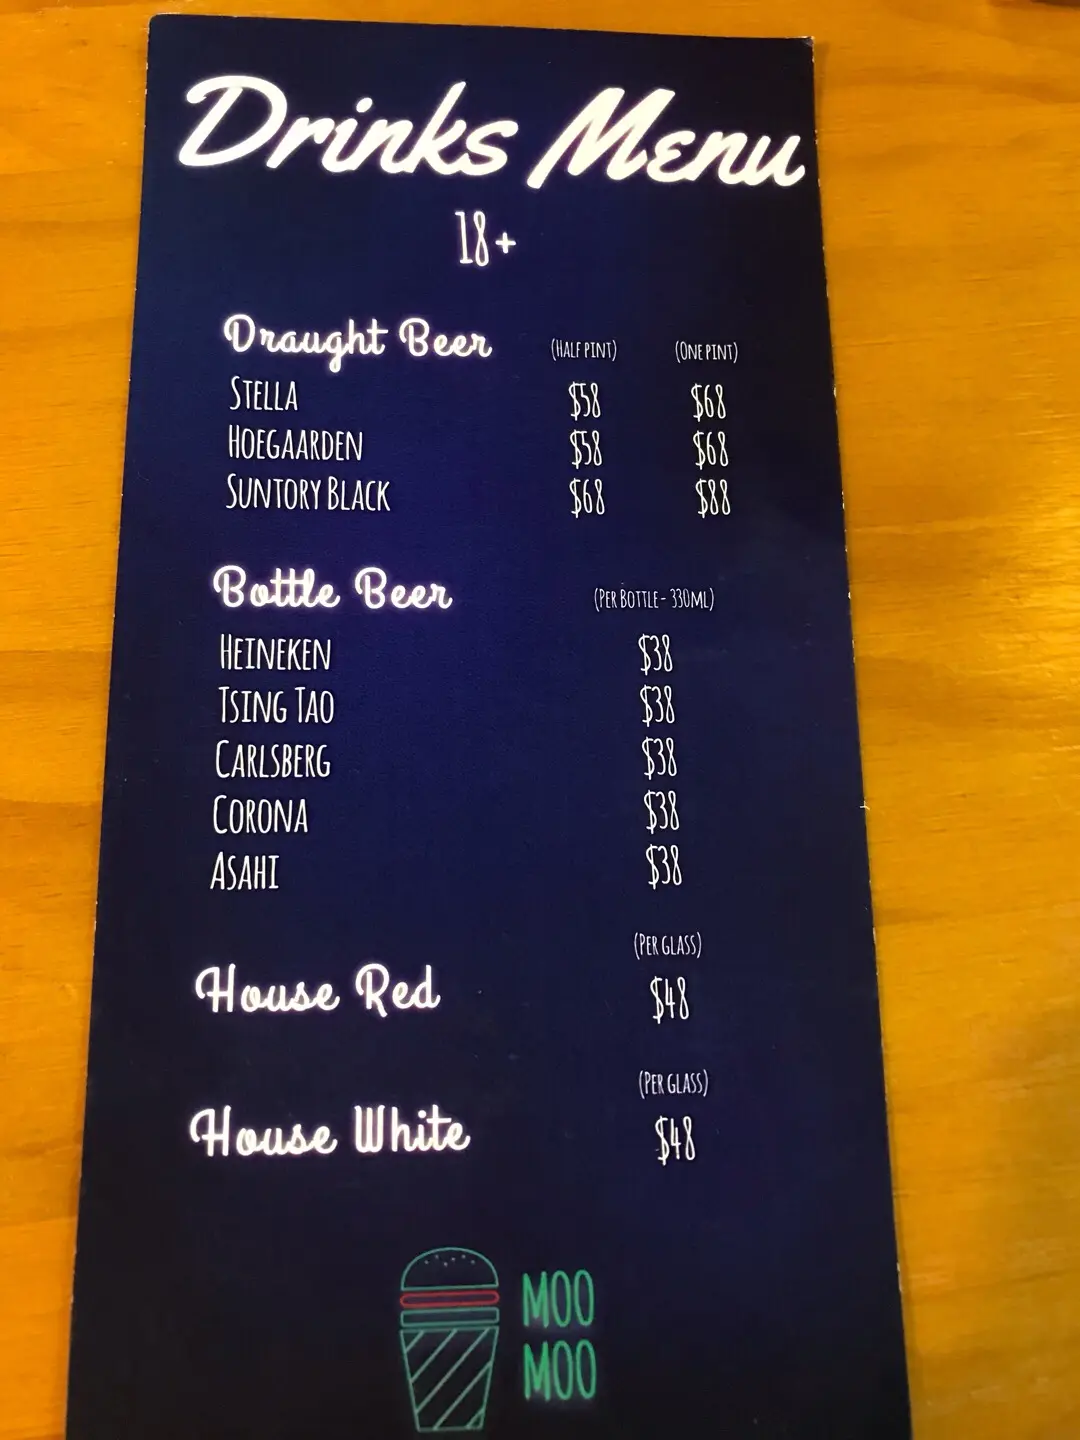 Drinks Menu
18+
Draught Beer (Half pint) (One pint)
Stella $58 $68
Hoegaarden $58 $68
Suntory Black $68 $88
Bottle Beer (Per Bottle - 330ml)
Heineken $38
Tsing Tao $38
Carlsberg $38
Corona $38
Asahi $38
(Per glass)
House Red $48
(Per glass)
House White $48
MOO
MOO